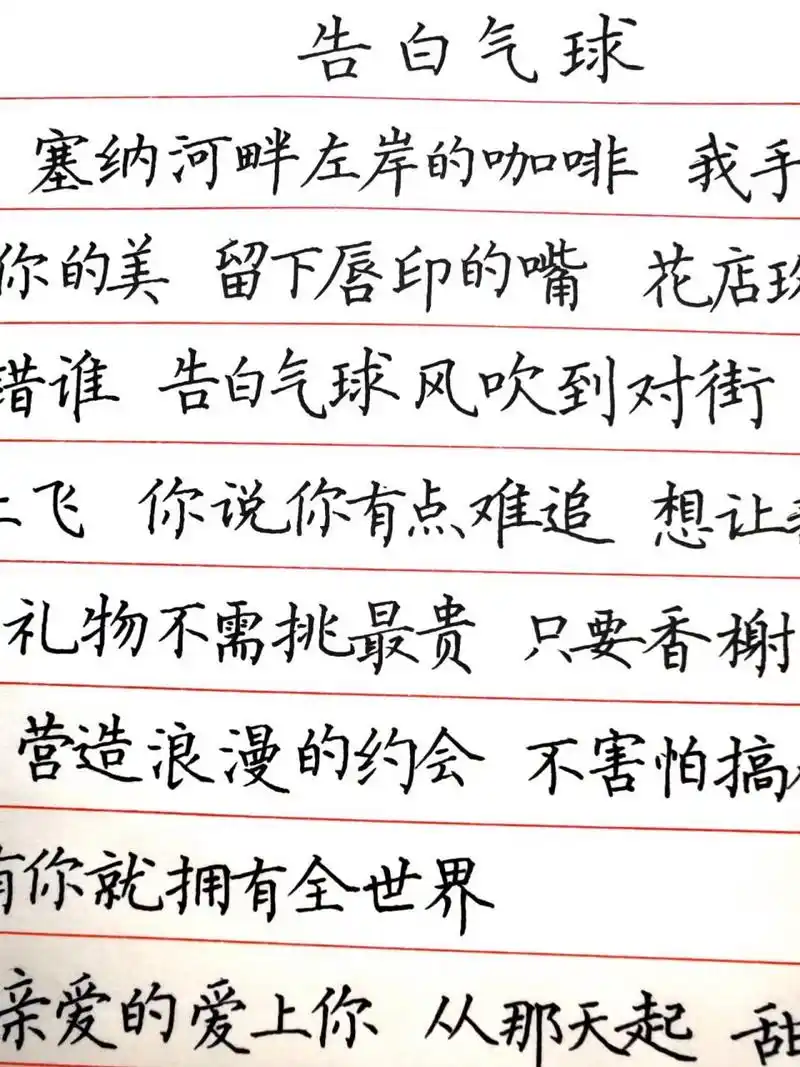 告白气球
塞纳河畔左岸的咖啡 我手
你的美 留下唇印的嘴 花店玫
错谁 告白气球风吹到对街
上飞 你说你有点难追 想让我
礼物不需挑最贵 只要香榭
营造浪漫的约会 不害怕搞
有你就拥有全世界
亲爱的爱上你 从那天起 甜